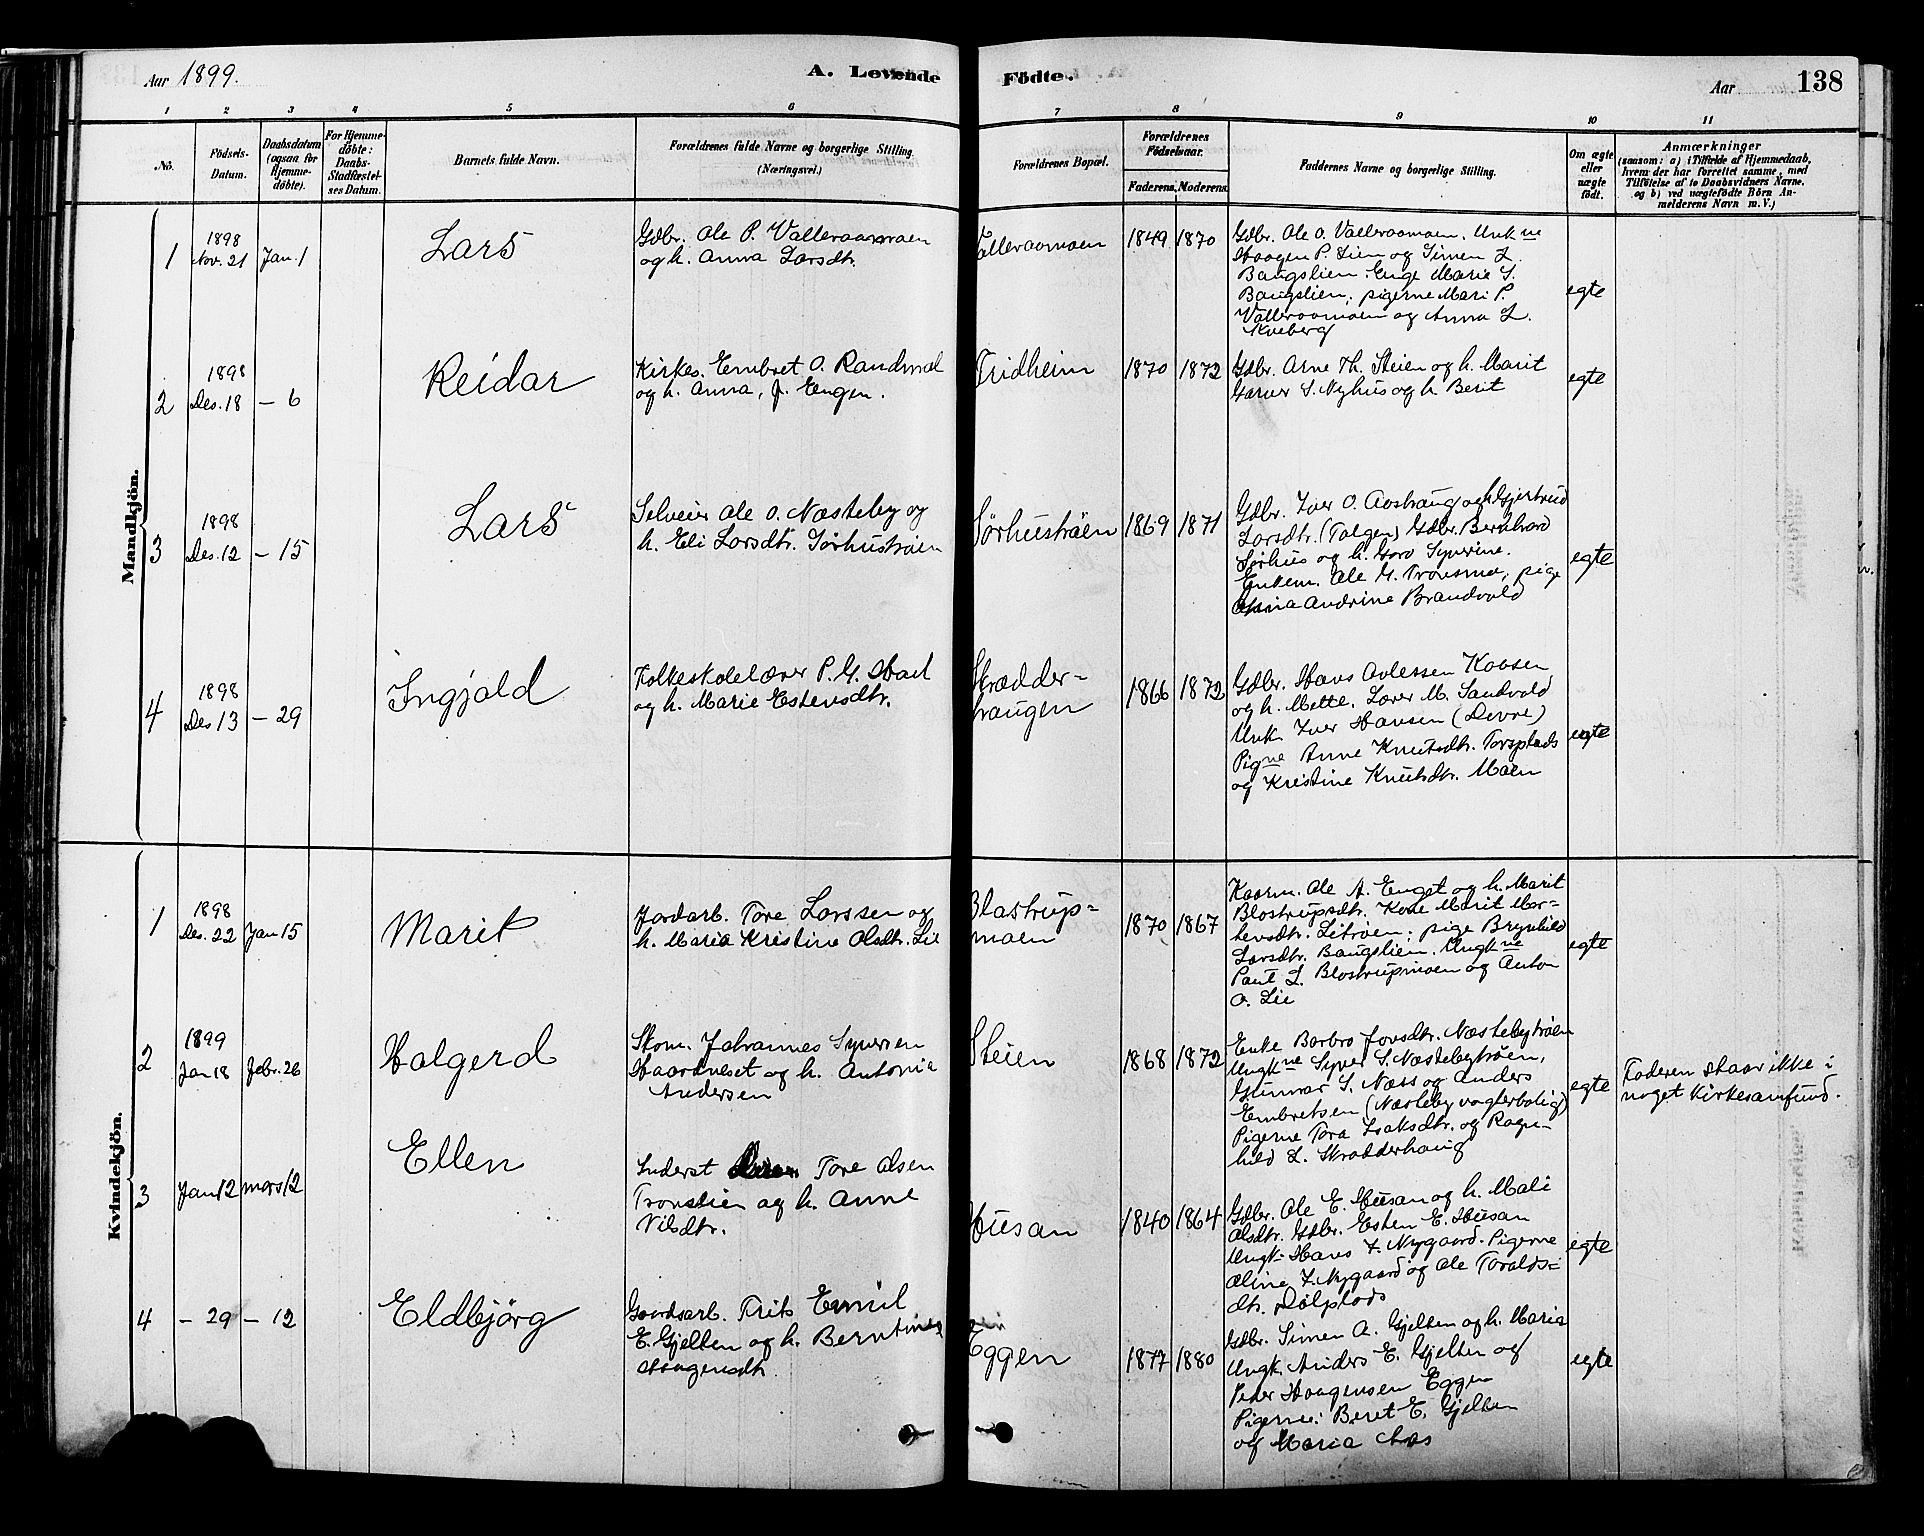 Aar 1899.
A. Levende
Födte.
Aar
138
1 2 3 4 5 6 7 8 9 10 11
No.
Födsels-
Datum.
Daabsdatum
(ogsaa for
Hjemme-
döbte).
For Hjemme-
döbte:
Daabs-
Stadfæstel-
ses Datum.
Barnets fulde Navn.
Forældrenes fulde Navne og borgerlige Stilling
(Næringsvei.)
Forældrenes Bopæl.
Forældrenes
Födselsaar.
Faderens. Moderens.
Faddernes Navne og borgerlige Stilling.
Om ægte
eller
uægte
födt.
Anmærkninger
(saasom: a) i Tilfælde af Hjemmedaab,
hvem der har forrettet samme, med
Tilföielse af to Daabsvidners Navne.
og b) ved uægtefödte Börn An-
melderens Navn m. V.)
Mandkjön.
1
1898
Nov. 21
Jan. 1
Lars
Gdbr. Ole P. Valleraamoen
og h. Anna Larsdtr.
Valleraamoen
1849
1870
Gdbr. Ole O. Valleraamoen. Unk ne
Haagen P. Lien og Simen L.
Bangslien. Enge Marie S.
Bangslien, pigerne Mari P.
Valleraamoen og Anna L.
Kveberg
egte
2
1898
Des. 18
- 6
Reidar
Kirkes. Embret O. Randmæl
og h. Anna, f. Engen.
Fridheim
1870
1872
Gdbr. Arne Th. Steien og h. Marit
Garver S. Nyhus og h. Berit
egte
3
1898
Des. 12
- 15
Lars
Selveier Ole O. Næsteby og
h. Eli Larsdtr. Sørhustrøen
Sørhustrøen
1869
1871
Gdbr. Iver O. Aashaug og h. Gjertrud
Larsdtr. (Tolgen) Gdbr. Bernhard
Sørhus og h. Goro Syverine.
Enkem. Ole G. Tronsmo, pige
Andrine Brandvold
egte
4
1898
Des 13
- 29
Ingjald
Folkeskolelærer P. G. Stai
og h. Marie Estensdtr.
Skrædder-
haugen
1866
1872
Gdbr. Hans Avlessen Kaasen
og h. Mette. Lærer M. Sandvold
Unk. Iver Hansen (Dovre)
Pigne Anne Knutsdtr. Torsplads
og Kristine Knutsdtr. Moen
egte
Kvindekjön.
1
1898
Des. 22
Jan 15
Marit
Jordarb. Tore Larssen og
h. Maria Kristine Olsdtr. Lie
Blastrup-
moen
1870
1867
Kaarm. Ole A. Enget og h. Marit
Blostrupsdtr. Kone Marit Mor-
tensdtr. Litrøen; pige Brynhild
Larsdtr. Bangslien. Ungkne
Paul L. Blostrupmoen og Anton
O. Lie
egte
2
1899
Jan 18
Febr. 26
Halgerd
Skom. Johannes Syversen
Haardneset og h. Antonie
Andersen
Steien
1868
1872
Enke Barbro Jonsdtr. Næstebytrøen
Ungkne Syver S. Næstebytrøen,
Gunnar S. Næss og Anders
Embretsen (Næsteby vogterbolig)
Pigerne Tora Isaksdtr. og Ragn-
hild L. Skrædderhaug
egte
Faderen staar ikke i
noget Kirkesamfund.
3
Jan 12
mars 12
Ellen
Inderst Tore Olsen
Tronslien og h. Anne
Nilsdtr.
Husan
1840
1864
Gdbr. Ole E. Husan og h. Mali
Olsdtr. Gdbr. Esten E. Husan
Ungk. Hans T. Nygaard. Pigerne
Oline T. Nygaard og Ole Toralds-
dtr. Dölplads
egte
4
- 29
- 12
Eldbjörg
Gaardsarb. Frits Emil
E. Gjelten og h. Berntine
Haagensdtr.
Eggen
1877
1880
Gdbr. Simen A. Gjelten og h. Maria
Ungk. Anders E. Gjelten og
Peder Haagensen Eggen
Pigerne: Beret E. Gjelten
og Maria Aas
egte